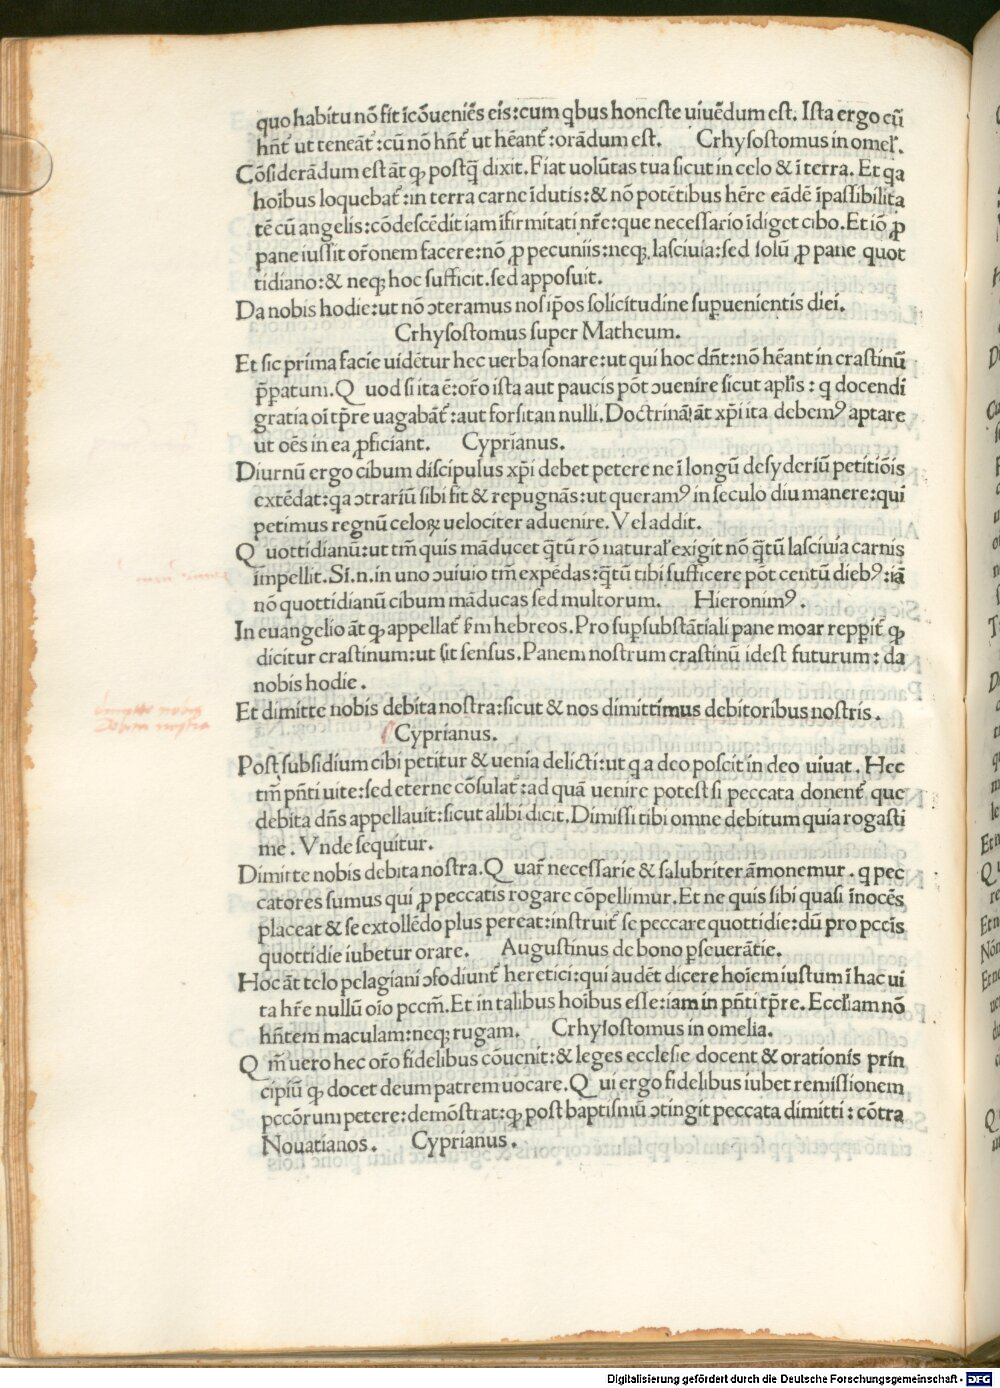 quo habitu nō ſit īcōueniēs eis:cum qbus honeſte uiuēdum eſt. Iſta ergo cū
hn̄t᷑ ut teneāt᷑:cū nō hn̄t᷑ ut hēant᷑:orādum eſt. Crhyſoſtomus in omeľ.
Cōſiderādum eſt āt qꝫ poſtq̄ dixit. Fiat uolūtas tua ſicut in celo & ī terra. Et qa
hoībus loquebat᷑:in terra carne īdutis:& nō potētibus hēre eādē īpaſſibilita
tē cū angelis:cōdeſcēdit iam īfirmitati nr̄e:que neceſſario īdiget cibo. Et iō ꝓ
pane iuſſit or̄onem facere:nō ꝓ pecuniis:neqꝫ laſciuia:ſed ſolū ꝓ pane quot
tidiano:& neqꝫ hoc ſufficit.ſed appoſuit.
Da nobis hodie:ut nō ↄteramus nos ip̄os ſolicitudine ſupuenientis diei.
Crhyſoſtomus ſuper Matheum.
Et ſic prima facie uidētur hec uerba ſonare:ut qui hoc dn̄t:nō hēant in craſtinū
p̄patum.Q uod ſi ita ē:or̄o iſta aut paucis pōt ↄuenire ſicut apl̄is : q docendi
gratia oī tp̄re uagabāt᷑:aut forſitan nulli.Doctrinā āt xp̄i ita debemꝰ aptare
ut oēs in ea ꝓficiant. Cyprianus.
Diurnū ergo cibum diſcipulus xp̄i debet petere ne ī longū deſyderiū petitiōis
extēdat:qa ↄtrariū ſibi fit & repugnās:ut queramꝰ in ſeculo diu manere:qui
petimus regnū celoꝝ uelociter aduenire. Vel addit.
Q uottidianū:ut tm̄ quis māducet q̄tū rō naturaľ exigit nō q̄tū laſciuia carnis
impellit.Si.n.in uno ↄuiuio tm̄ expēdas:q̄tū tibi ſufficere pōt centū diebꝰ:iā
nō quottidianū cibum māducas ſed multorum. Hieronimꝰ.
In euangelio āt qꝫ appellat᷑ ſm̄ hebreos. Pro ſupſubſtātiali pane moar reppit᷑ qꝫ
dicitur craſtinum:ut ſit ſenſus.Panem noſtrum craſtinū ideſt futurum: da
nobis hodie.
Et dimitte nobis debita noſtra:ſicut & nos dimittimus debitoribus noſtris.
Cyprianus.
Poſt ſubſidium cibi petitur & uenia delicti:ut q a deo poſcit in deo uiuat. Hec
tm̄ pn̄ti uite:ſed eterne cōſulat᷑:ad quā uenire poteſt ſi peccata donent᷑ que
debita dn̄s appellauit:ſicut alibi dicit.Dimiſſi tibi omne debitum quia rogaſti
me. Vnde ſequitur.
Dimitte nobis debita noſtra.Q uar̄ neceſſarie & ſalubriter āmonemur. q pec
catores ſumus qui ꝓ peccatis rogare cōpellimur. Et ne quis ſibi quaſi īnocēs
placeat & ſe extollēdo plus pereat:inſtruit᷑ ſe peccare quottidie:dū pro pcc̄is
quottidie iubetur orare. Auguſtinus de bono pſeuerātie.
Hoc āt telo pelagiani ↄfodiunt᷑ heretici:qui audēt dicere hoīem iuſtum ī hac ui
ta hr̄e nullū oīo pccm̄.Et in talibus hoībus eſſe:iam in pn̄ti tp̄re. Eccl̄iam nō
hn̄tem maculam:neqꝫ rugam. Crhyſoſtomus in omelia.
Q m̄ uero hec or̄o fidelibus cōuenit:& leges eccleſie docent & orationis prin
cipiū qꝫ docet deum patrem uocare.Q ui ergo fidelibus iubet remiſſionem
pccōrum petere:demōſtrat:qꝫ poſt baptiſmū ↄtingit peccata dimitti: cōtra
Nouatianos. Cyprianus.
dimitte nobis
Debita noſtra
Digitalisierung gefördert durch die Deutsche Forschungsgemeinschaft - DFG